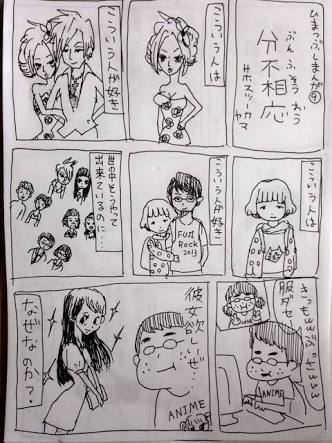 ひまつぶしまんが
ぶんふそうおう
分不相応
こういう人は
こういう人が好き
こういう人は
こういう人が好き
FUJI
Rock
2013
世の中そうやって
出来ているのに…
きっもwwぶっさwww
服ダセ
ANIME
彼女欲しいぜ…
ANIME
なぜなのか?